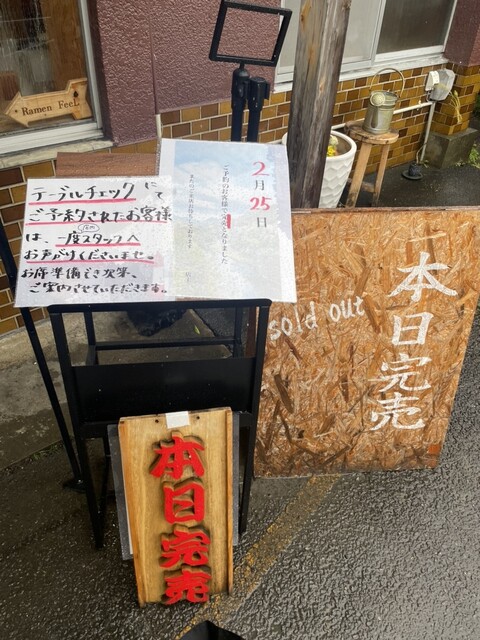 Ramen Feel
テーブルチェックにて
ご予約されたお客様
は、一度店内スタッフへ
お声がけくださいませ。
お席準備でき次第、
ご案内させていただきます。
2月25日
ご予約のお客様で完売となりました
sold out
本日完売
本日完売